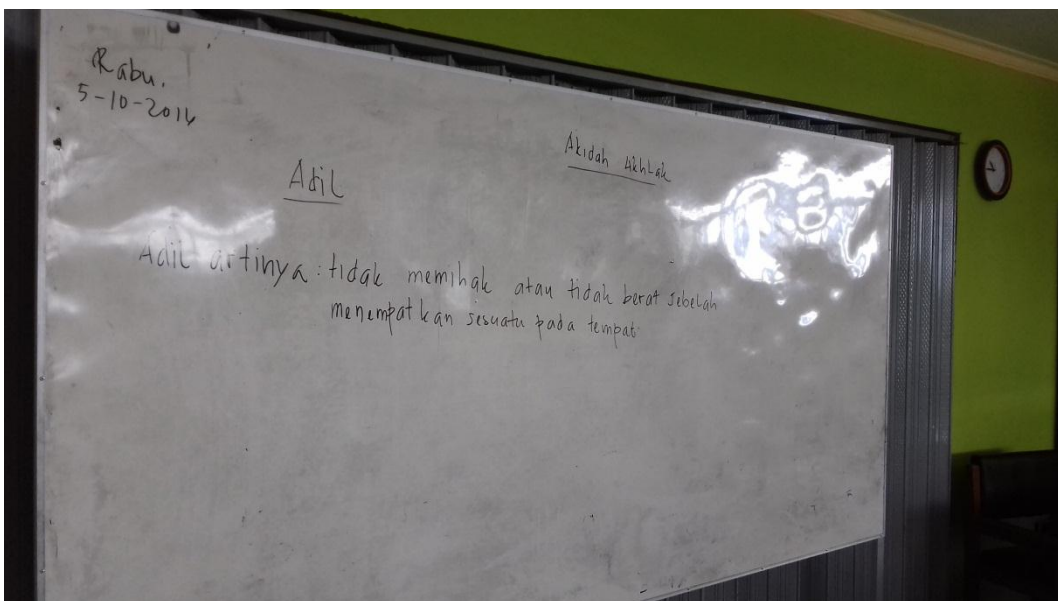 Rabu.
5-10-2016
Akidah Akhlak
Adil
Adil artinya : tidak memihak atau tidak berat sebelah
menempatkan sesuatu pada tempat